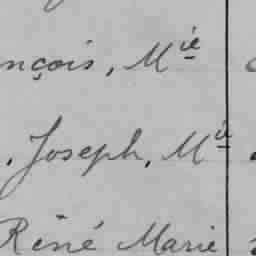 nçois, Mie
. Joseph, Mie
Réné Marie